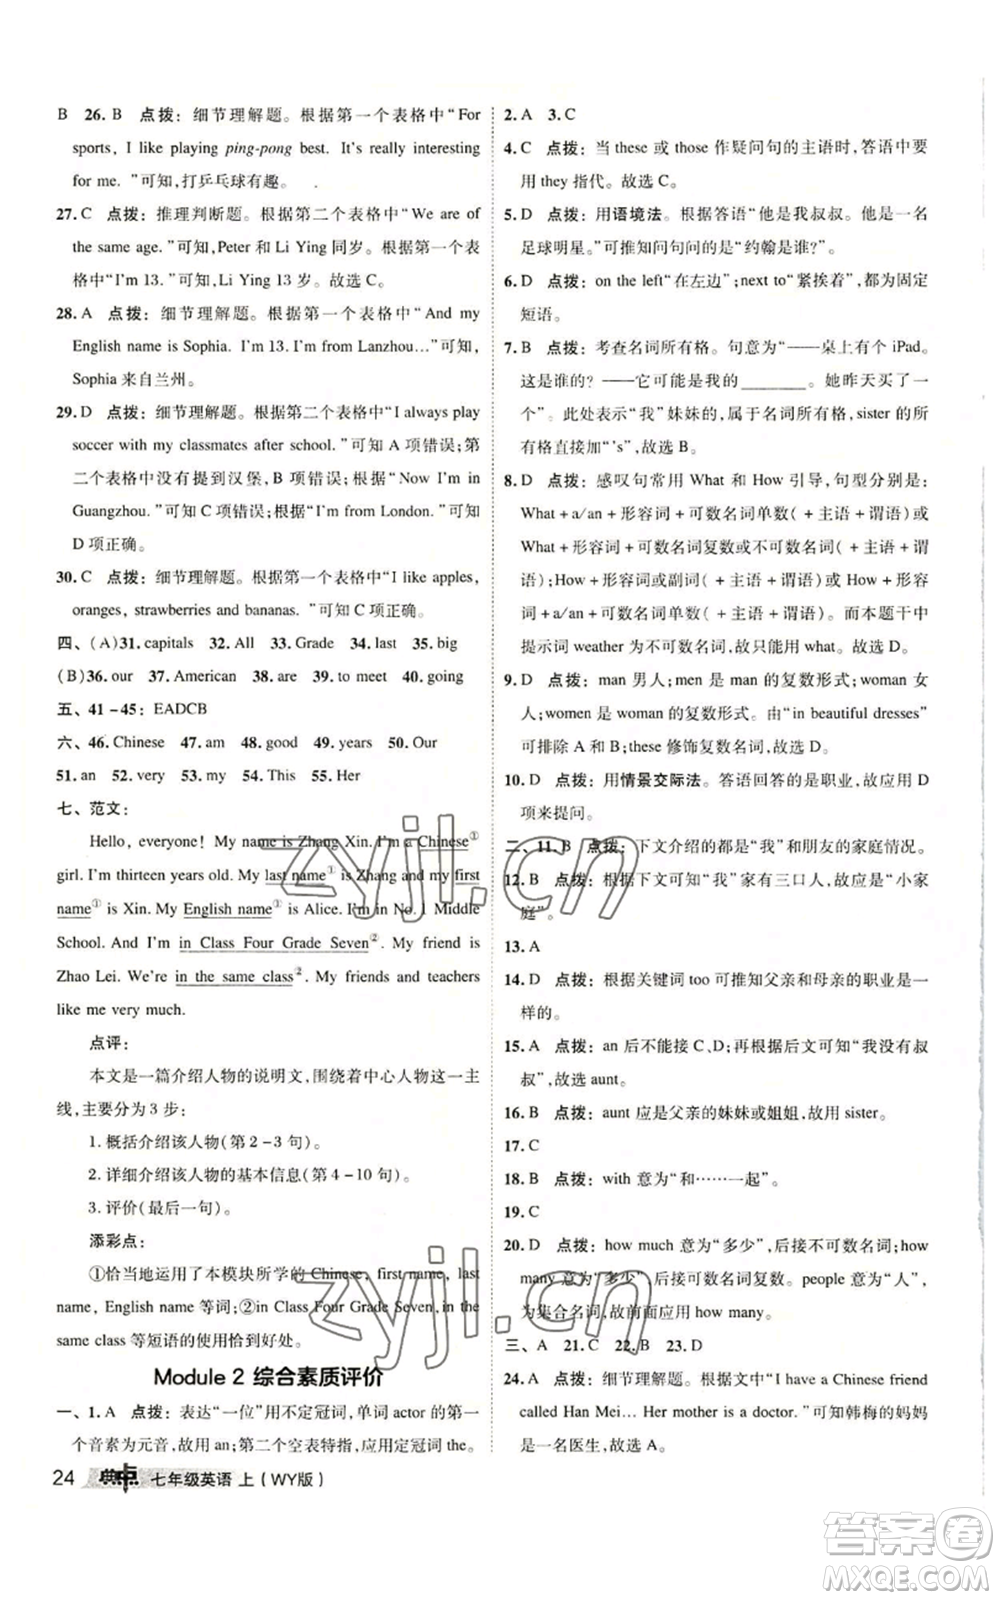 B　26. B　点拨：细节理解题。根据第一个表格中“For
sports, I like playing ping-pong best. It's really interesting
for me. ”可知，打乒乓球有趣。
27. C　点拨：推理判断题。根据第二个表格中“We are of
the same age. ”可知，Peter 和 Li Ying 同岁。根据第一个表
格中“I'm 13. ”可知，Li Ying 13 岁。故选 C。
28. A　点拨：细节理解题。根据第一个表格中“And my
English name is Sophia. I'm 13. I'm from Lanzhou…”可知，
Sophia 来自兰州。
29. D　点拨：细节理解题。根据第二个表格中“I always play
soccer with my classmates after school. ”可知 A 项错误；第
二个表格中没有提到汉堡，B 项错误；根据“Now I'm in
Guangzhou. ”可知 C 项错误；根据“I'm from London. ”可知
D 项正确。
30. C　点拨：细节理解题。根据第一个表格中“I like apples,
oranges, strawberries and bananas. ”可知 C 项正确。
四、(A)31. capitals　32. All　33. Grade　34. last　35. big
(B)36. our　37. American　38. are　39. to meet　40. going
五、41－45：EADCB
六、46. Chinese　47. am　48. good　49. years　50. Our
51. an　52. very　53. my　54. This　55. Her
七、范文：
Hello, everyone! My name is Zhang Xin. I'm a Chinese①
girl. I'm thirteen years old. My last name① is Zhang and my first
name① is Xin. My English name① is Alice. I'm in No. 1 Middle
School. And I'm in Class Four Grade Seven②. My friend is
Zhao Lei. We're in the same class②. My friends and teachers
like me very much.
点评：
本文是一篇介绍人物的说明文，围绕着中心人物这一主
线，主要分为 3 步：
1. 概括介绍该人物(第 2－3 句)。
2. 详细介绍该人物的基本信息(第 4－10 句)。
3. 评价(最后一句)。
添彩点：
①恰当地运用了本模块所学的 Chinese, first name, last
name, English name 等词；②in Class Four Grade Seven, in the
same class 等短语的使用恰到好处。
Module 2 综合素质评价
一、1. A　点拨：表达“一位”用不定冠词，单词 actor 的第一
个音素为元音，故用 an；第二个空表特指，应用定冠词 the。
24 典中点 七年级英语 上(WY版)
2. A　3. C
4. C　点拨：当 these 或 those 作疑问句的主语时，答语中要
用 they 指代。故选 C。
5. D　点拨：用语境法。根据答语“他是我叔叔。他是一名
足球明星。”可推知问句问的是“约翰是谁？”。
6. D　点拨：on the left“在左边”；next to“紧挨着”，都为固定
短语。
7. B　点拨：考查名词所有格。句意为“——桌上有个 iPad。
这是谁的？——它可能是我的________。她昨天买了一
个”。此处表示“我”妹妹的，属于名词所有格，sister 的所
有格直接加“'s”，故选 B。
8. D　点拨：感叹句常用 What 和 How 引导，句型分别是：
What＋a/an＋形容词＋可数名词单数(＋主语＋谓语)或
What＋形容词＋可数名词复数或不可数名词(＋主语＋谓
语)；How＋形容词或副词(＋主语＋谓语)或 How＋形容
词＋a/an＋可数名词单数(＋主语＋谓语)。而本题干中
提示词 weather 为不可数名词，故应用 what。故选 D。
9. D　点拨：man 男人；men 是 man 的复数形式；woman 女
人；women 是 woman 的复数形式。由“in beautiful dresses”
可排除 A 和 B；these 修饰复数名词，故选 D。
10. D　点拨：用情景交际法。答语回答的是职业，故应用 D
项来提问。
二、11. B　点拨：下文介绍的都是“我”和朋友的家庭情况。
12. B　点拨：根据下文可知“我”家有三口人，故应是“小家
庭”。
13. A
14. D　点拨：根据关键词 too 可推知父亲和母亲的职业是一
样的。
15. A　点拨：an 后不能接 C、D；再根据后文可知“我没有叔
叔”，故选 aunt。
16. B　点拨：aunt 应是父亲的妹妹或姐姐，故用 sister。
17. C
18. B　点拨：with 意为“和……一起”。
19. C
20. D　点拨：how much 意为“多少”，后接不可数名词；how
many 意为“多少”，后接可数名词复数。people 意为“人”，
为集合名词，故前面应用 how many。
三、A　21. C　22. B　23. D
24. A　点拨：细节理解题。根据文中“I have a Chinese friend
called Han Mei… Her mother is a doctor. ”可知韩梅的妈妈
是一名医生，故选 A。
zyjl.cn
zyjl.cn
答案圈
MXQE.COM